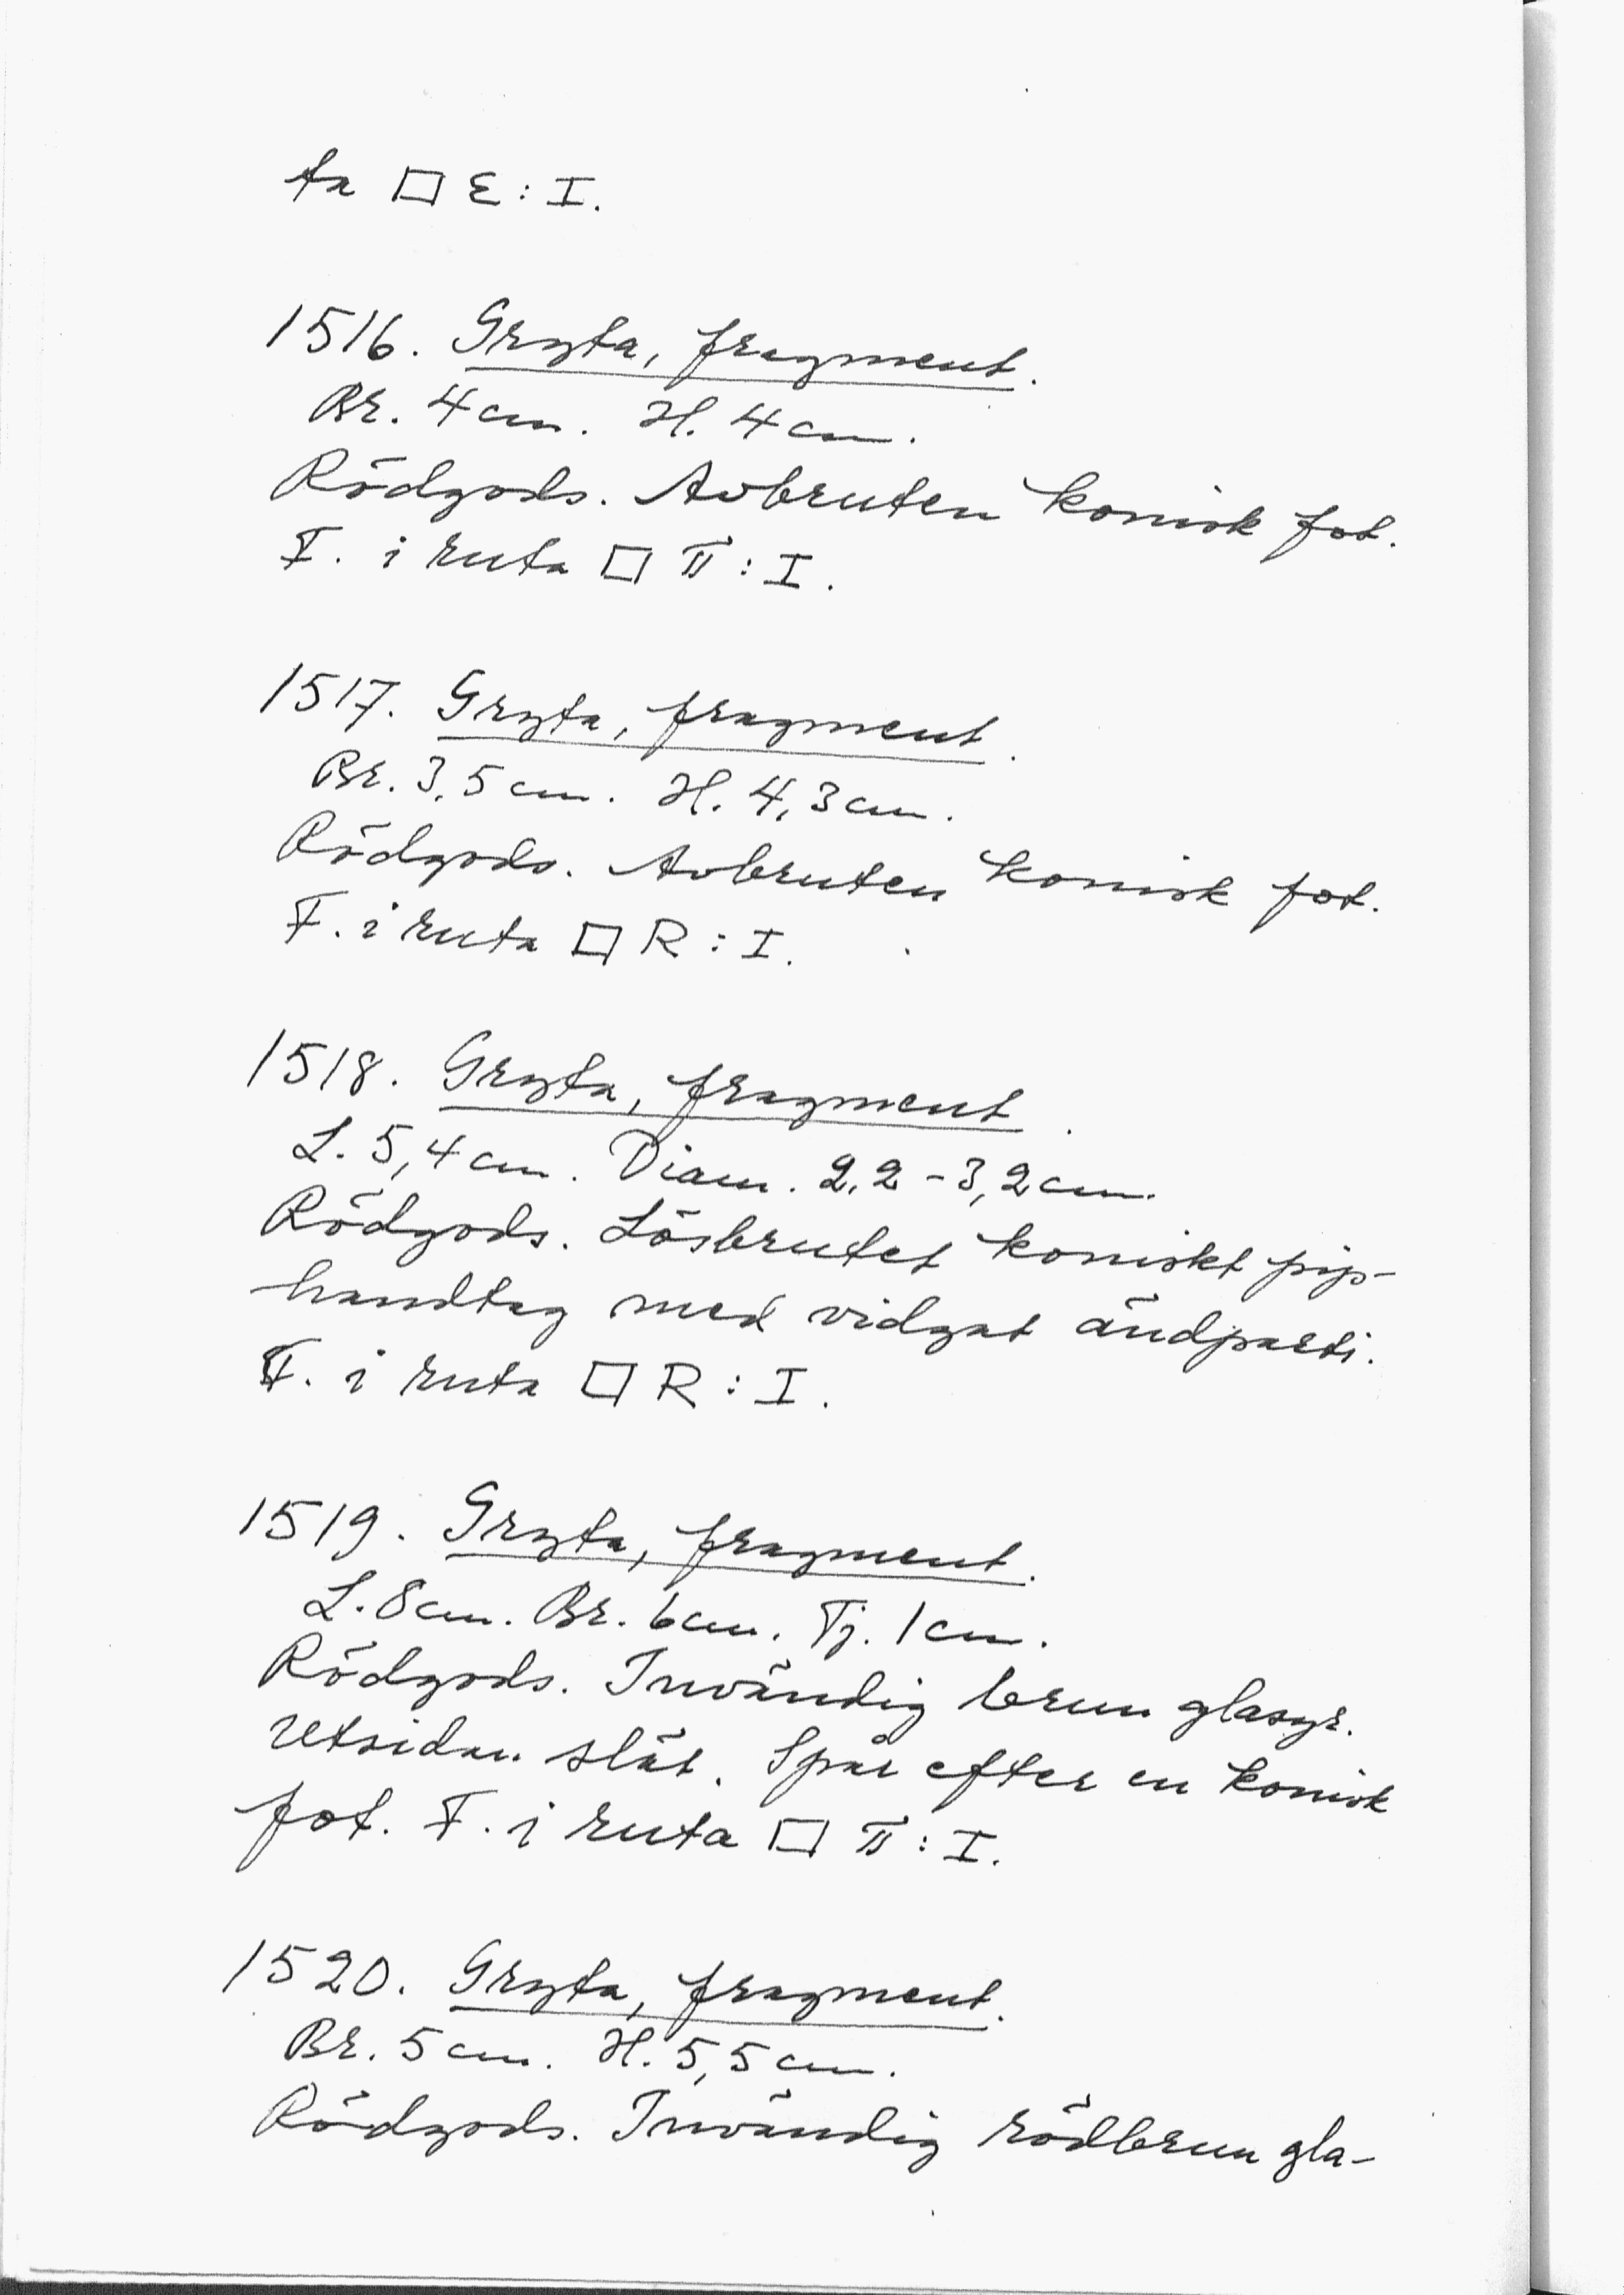 ta □ E : I.
1516. Gryta, fragment.
Br. 4 cm. H. 4 cm.
Rödgods. Avbruten konisk fot.
F. i ruta □ π : I.
1517. Gryta, fragment.
Br. 3,5 cm. H. 4,3 cm.
Rödgods. Avbruten konisk fot.
F. i ruta □ R : I.
1518. Gryta, fragment.
L. 5,4 cm. Diam. 2,2 - 3,2 cm.
Rödgods. Lösbrutet koniskt pip-
handtag med vidgat ändparti.
F. i ruta □ R : I.
1519. Gryta, fragment.
L. 8 cm. Br. 6 cm. Tj. 1 cm.
Rödgods. Invändig brun glasyr.
Utsidan slät. Spår efter en konisk
fot. F. i ruta □ π : I.
1520. Gryta, fragment.
Br. 5 cm. H. 5,5 cm.
Rödgods. Invändig rödbrun gla-